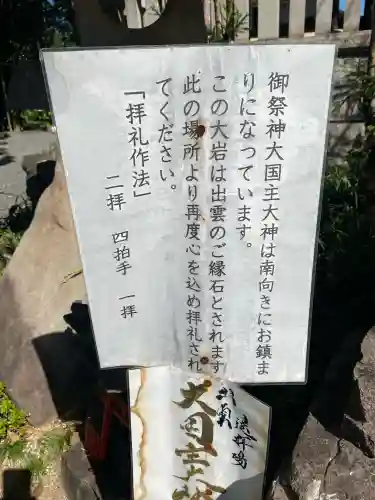 御祭神大国主大神は南向きにお鎮ま
りになっています。
この大岩は出雲のご縁石とされます
此の場所より再度心を込め拝礼され
てください。
「拝礼作法」
二拝　四拍手　一拝
大国主